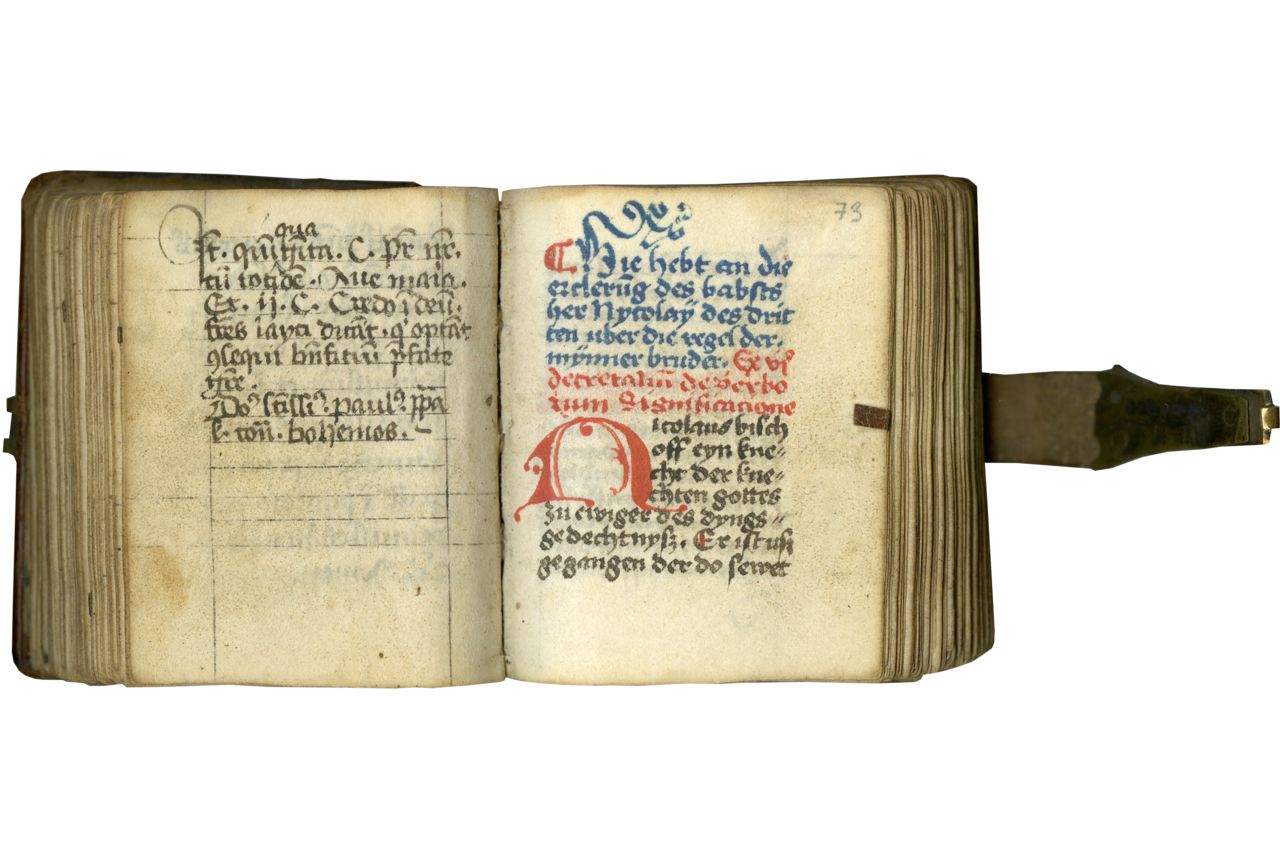 qua
st. qũ ta. C. Pr̃ nr̃.
cũ totidẽ. Aue maria.
Et. ij. C. Credo ĩ deũ.
fr̃es layci dicãt. q̛ optãt
ꝯsequi bñficiũ p̃fate
Do scilicꝫ paulꝰ. ppa
. bohemos.
73
¶ Hie hebt an die
erclerũg des babsts
her Nycolaÿ des drit
ten uber die regel der.
mÿnner bruder. Ex vjͦ
decretaliũ de verbo
rum significacione
Nicolaus bisch
off eyn kne-
cht der kne-
chten gottes
zu ewiger des dyngs
gedechtnysz. Er ist usz
gegangen der do sewet